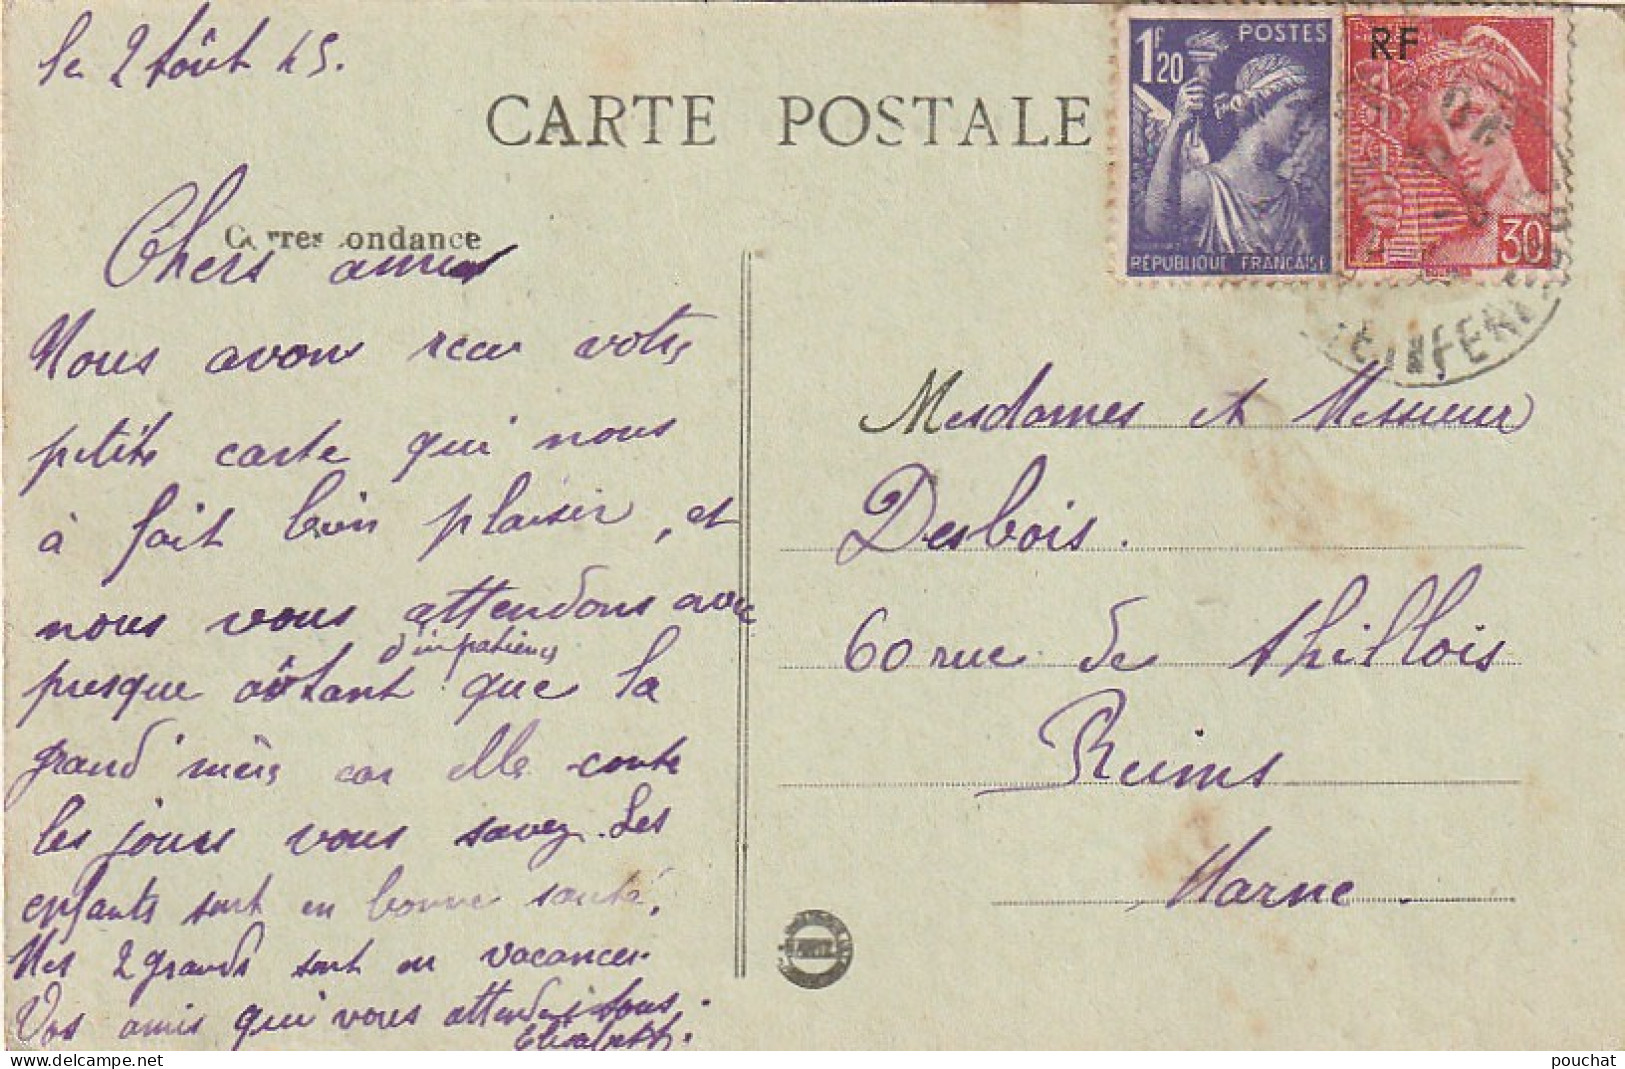 le 2 Août 45.
CARTE POSTALE
1F20
POSTES
RÉPUBLIQUE FRANÇAISE
RF
30
Correspondance
Chers amis
Nous avons reçu votre
petite carte qui nous
à fait bien plaisir, et
nous vous attendons avec
d'impatience
presque aôtant que la
grand'mère car elle conte
les jours vous savez. Les
enfants sont en bonne santé,
Mes 2 grands sont en vacances.
Vos amis qui vous attendent tous.
Elisabeth.
Mesdames et Messieur
Desbois.
60 rue de thillois
Reims
Marne.
pouchat